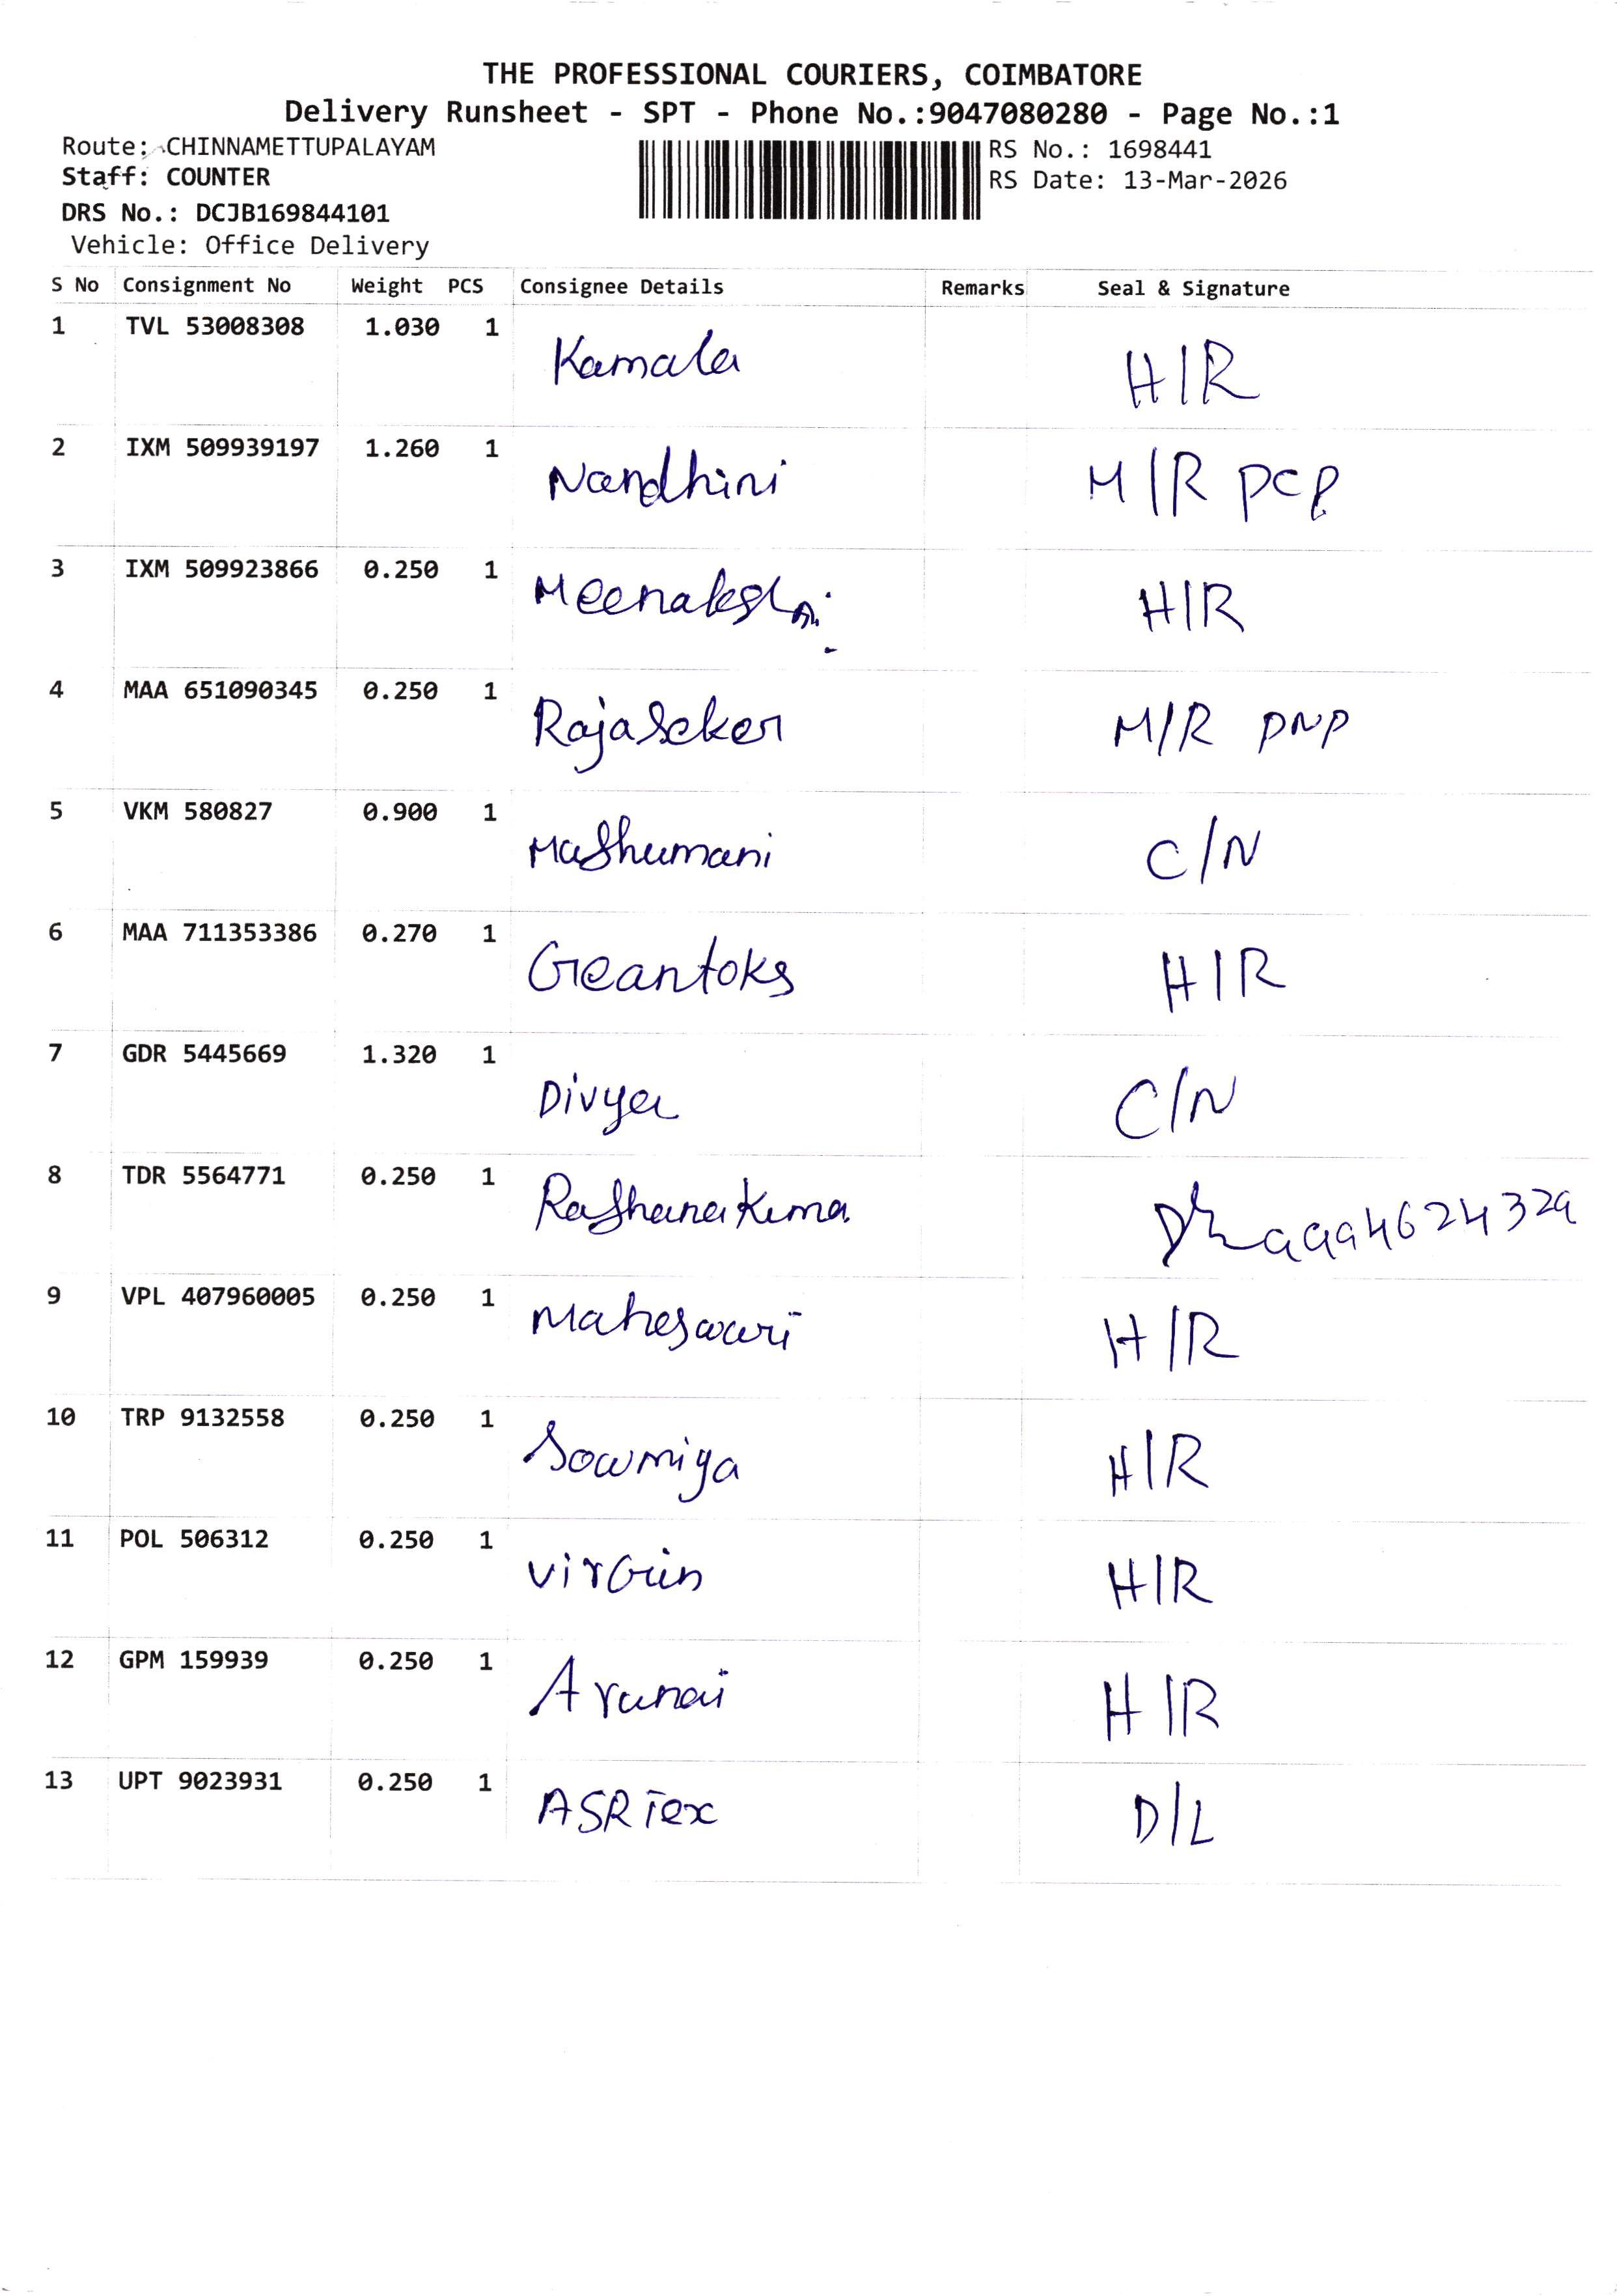 THE PROFESSIONAL COURIERS, COIMBATORE
Delivery Runsheet - SPT - Phone No.:9047080280 - Page No.:1
Route: CHINNAMETTUPALAYAM
RS No.: 1698441
Staff: COUNTER
RS Date: 13-Mar-2026
DRS No.: DCJB169844101
Vehicle: Office Delivery
S No Consignment No Weight PCS Consignee Details Remarks Seal & Signature
1 TVL 53008308 1.030 1 Kamala H/R
2 IXM 509939197 1.260 1 Nandhini M/R PCP
3 IXM 509923866 0.250 1 Meenakshi H/R
4 MAA 651090345 0.250 1 Rajaseker M/R PNP
5 VKM 580827 0.900 1 C/N
6 MAA 711353386 0.270 1 Geantoks H/R
7 GDR 5445669 1.320 1 Divya C/N
8 TDR 5564771 0.250 1
9 VPL 407960005 0.250 1 Maheswari H/R
10 TRP 9132558 0.250 1 Sowmiya H/R
11 POL 506312 0.250 1 H/R
12 GPM 159939 0.250 1 Arunai H/R
13 UPT 9023931 0.250 1 ASR Tex D/L